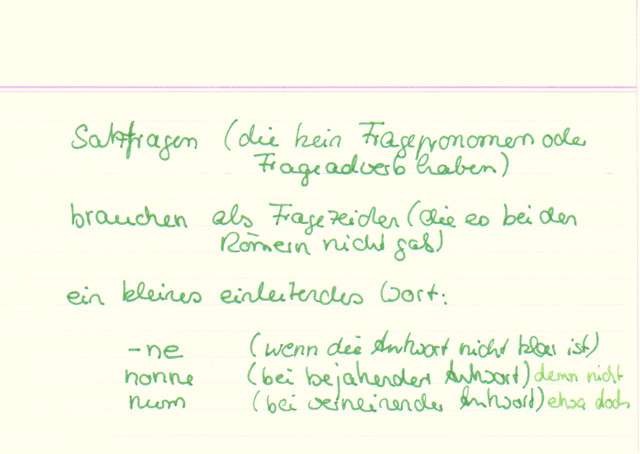 Satzfragen (die kein Fragepronomen oder
Frageadverb haben)
brauchen als Fragezeichen (die es bei den
Römern nicht gab)
ein kleines einleitendes Wort:
-ne (wenn die Antwort nicht klar ist)
nonne (bei bejahender Antwort) denn nicht
num (bei verneinender Antwort) etwa doch